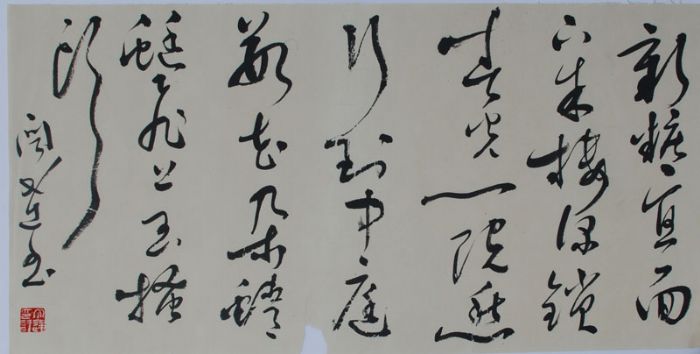 新粧宜面
下朱楼深锁
春光一院愁
行到中庭
数花朵蜻
蜓飞上玉搔
头
书